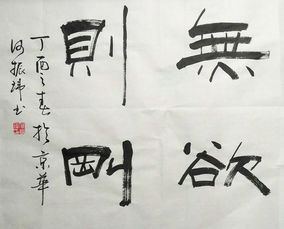 無欲
則剛
丁酉之春於京華
何振瑋書